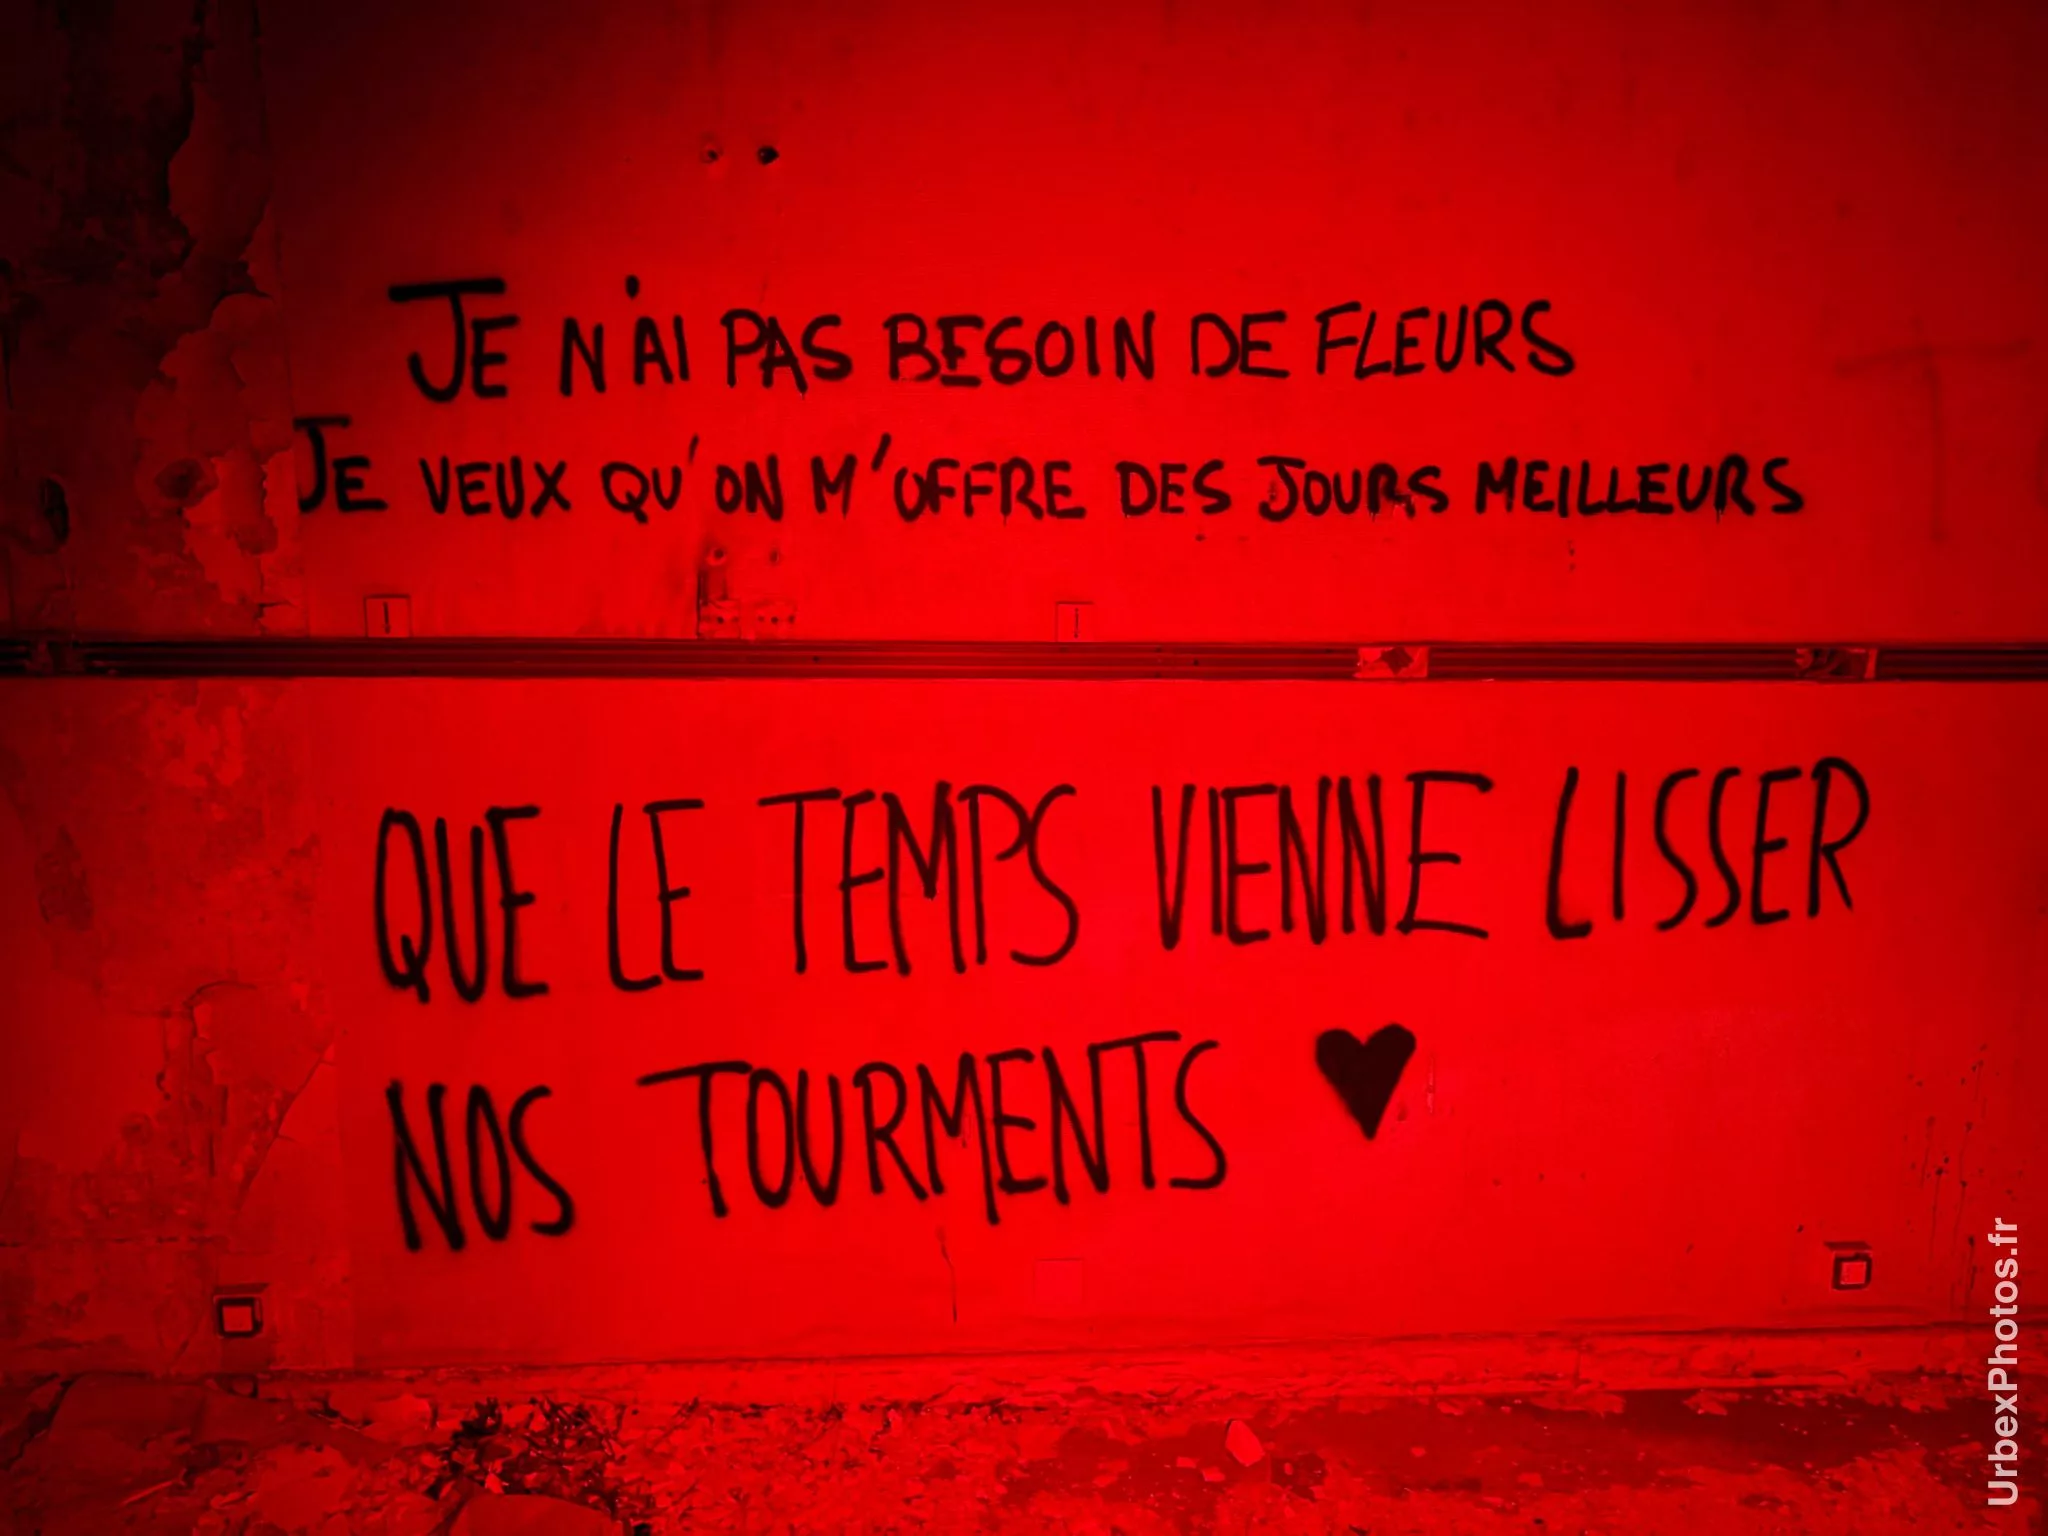 JE N'AI PAS BESOIN DE FLEURS
JE VEUX QU'ON M'OFFRE DES JOURS MEILLEURS
QUE LE TEMPS VIENNE LISSER
NOS TOURMENTS ♥
UrbexPhotos.fr